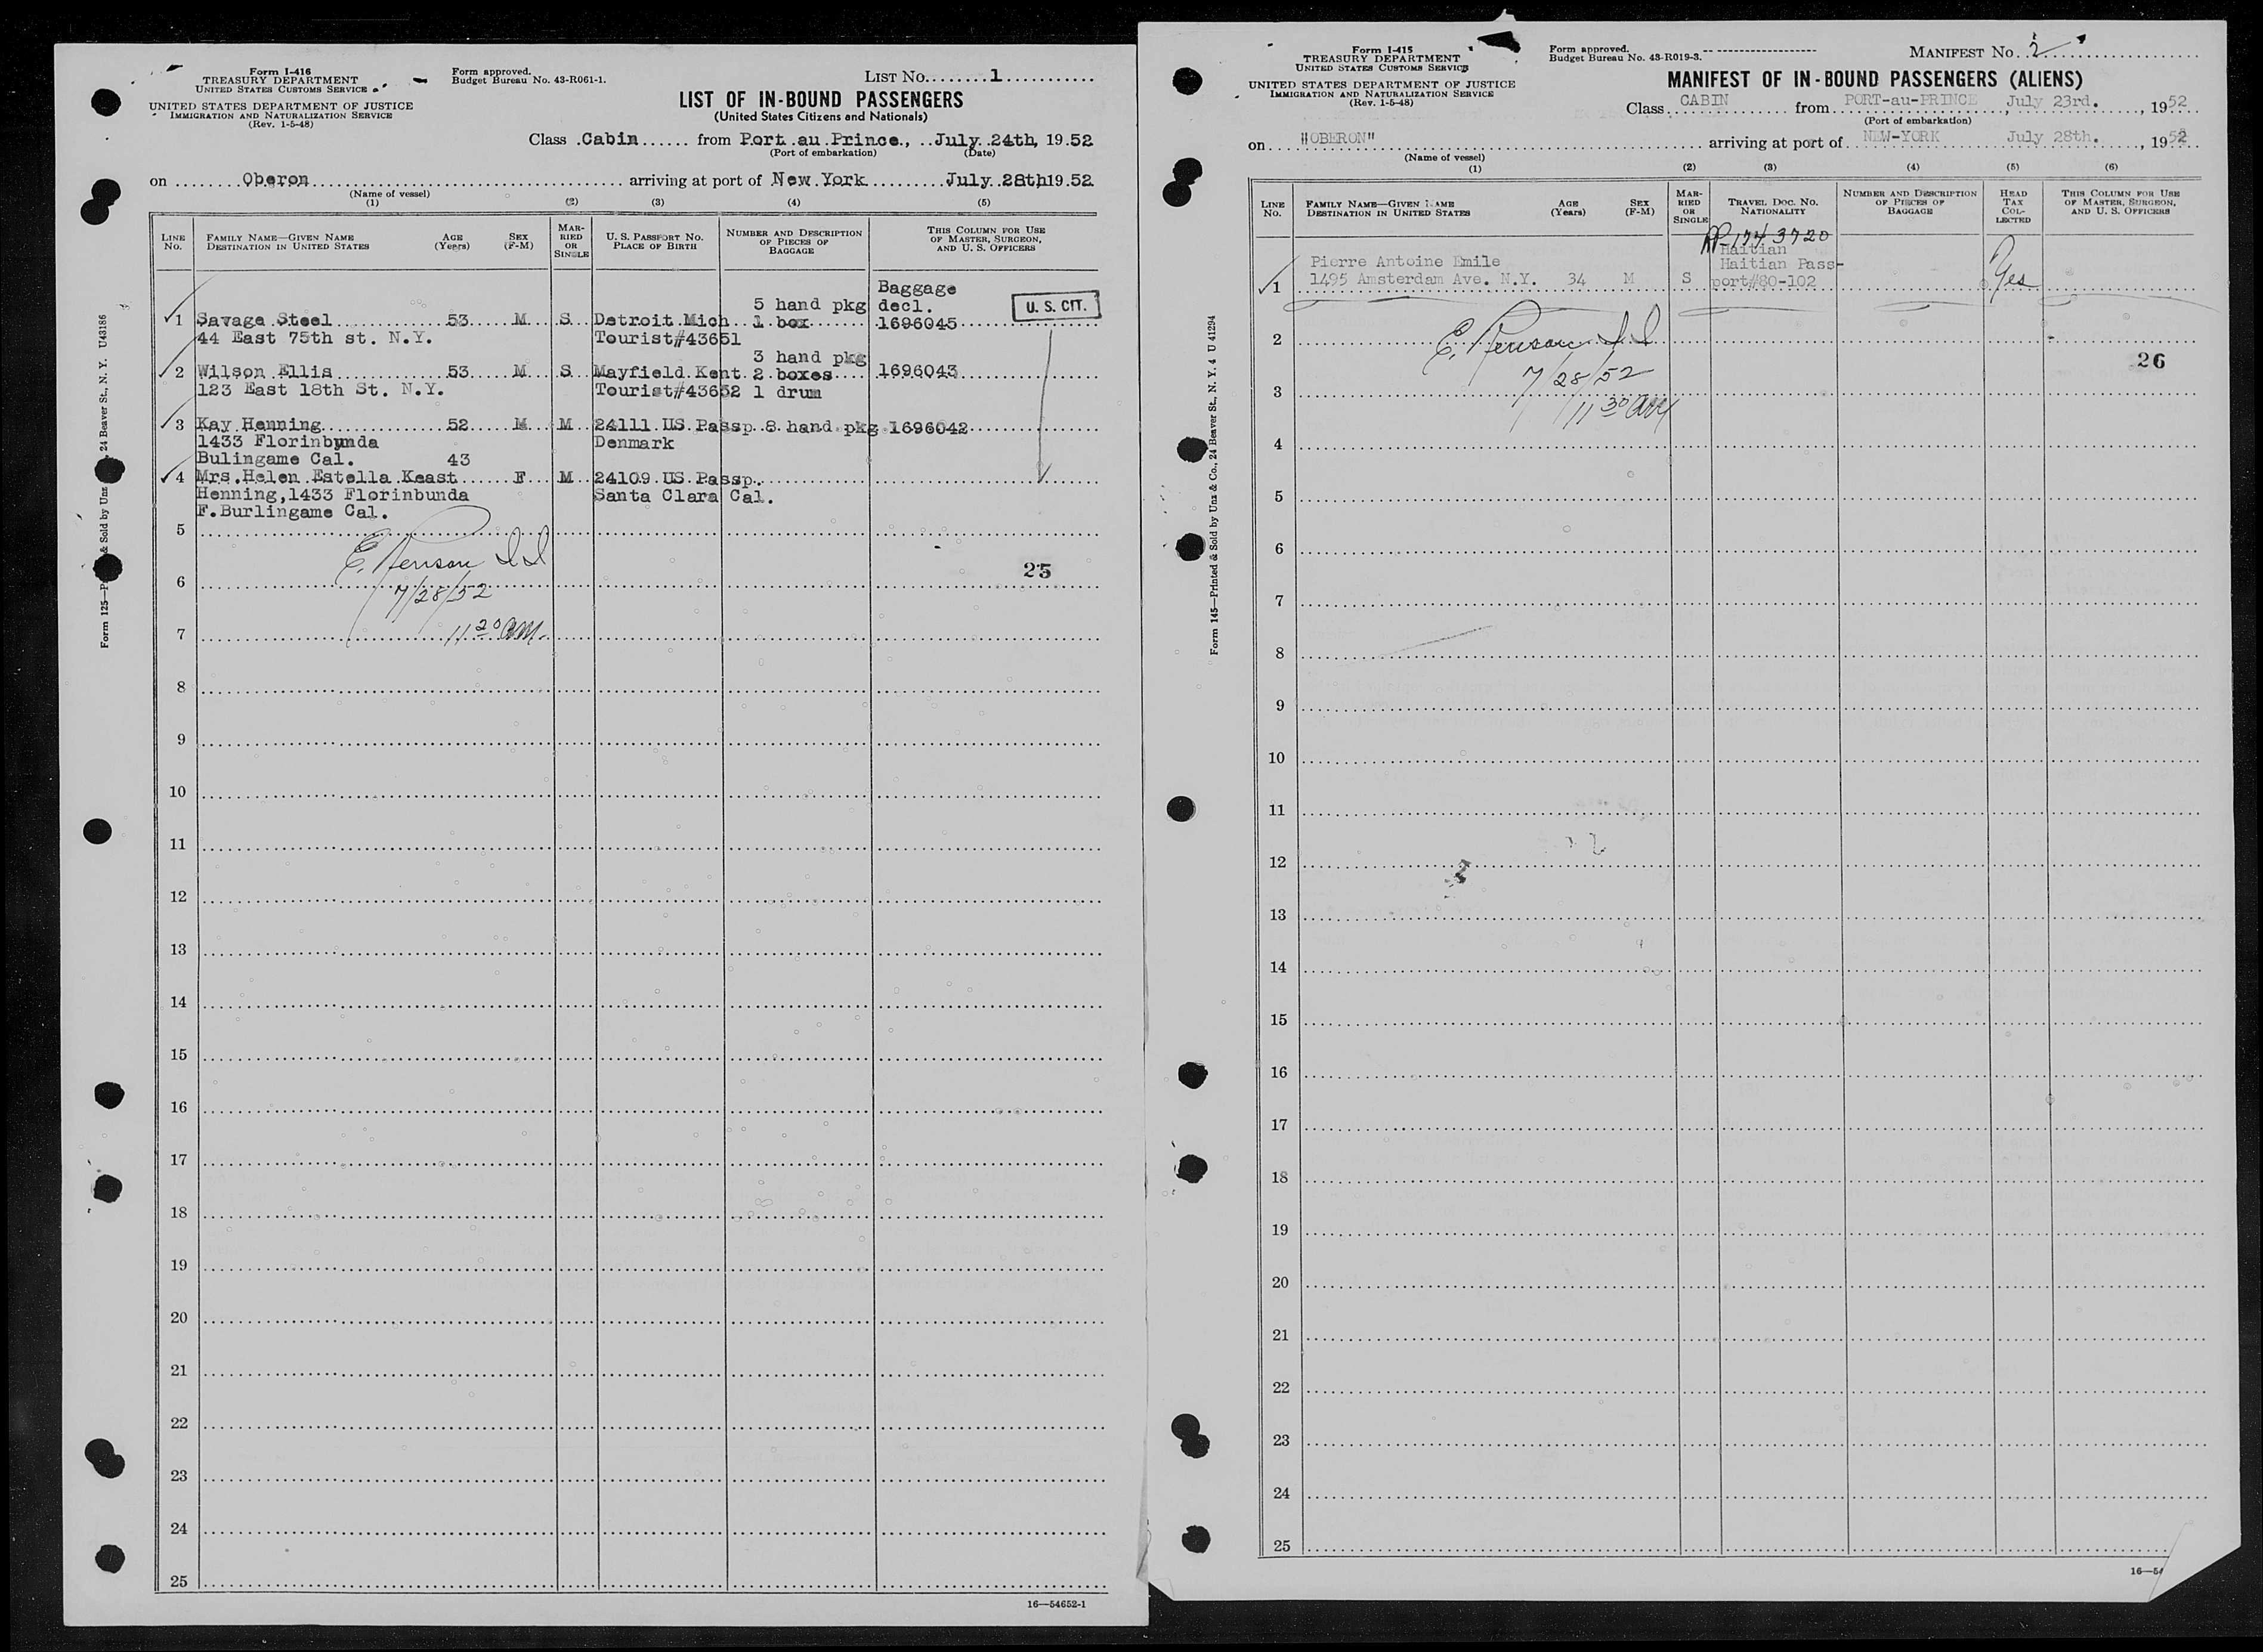 Form I-416
TREASURY DEPARTMENT
UNITED STATES CUSTOMS SERVICE
UNITED STATES DEPARTMENT OF JUSTICE
IMMIGRATION AND NATURALIZATION SERVICE
(Rev. 1-5-48)
Form approved.
Budget Bureau No. 43-R061-1.
LIST No. 1
LIST OF IN-BOUND PASSENGERS
(United States Citizens and Nationals)
Class Cabin from Port au Prince, July 24th, 1952
(Port of embarkation) (Date)
on Oberon arriving at port of New York July 28th 1952
(Name of vessel)
(1) (2) (3) (4) (5)
LINE No. FAMILY NAME—GIVEN NAME DESTINATION IN UNITED STATES AGE (Years) SEX (F-M) MARRIED OR SINGLE U. S. PASSPORT NO. PLACE OF BIRTH NUMBER AND DESCRIPTION OF PIECES OF BAGGAGE THIS COLUMN FOR USE OF MASTER, SURGEON, AND U. S. OFFICERS
Baggage
5 hand pkg decl.
1 Savage Steel 53 M S Detroit Mich 1 box 1696045 U. S. CIT.
44 East 75th st. N.Y. Tourist#43651
3 hand pkg
2 Wilson Ellis 53 M S Mayfield Kent 2 boxes 1696043
123 East 18th St. N.Y. Tourist#43652 1 drum
3 Kay Henning 52 M M 24111 US Passp 8 hand pkg 1696042
1433 Florinbunda Denmark
Bulingame Cal. 43
4 Mrs.Helen Estella Keast F M 24109 US Passp.
Henning,1433 Florinbunda Santa Clara Cal.
F.Burlingame Cal.
5
6 25
7/28/52
7 11 20 am.
8
9
10
11
12
13
14
15
16
17
18
19
20
21
22
23
24
25
16—54652-1
24 Beaver St., N. Y. U43186
Form 125— & Sold by Unz
Form I-415
TREASURY DEPARTMENT
UNITED STATES CUSTOMS SERVICE
UNITED STATES DEPARTMENT OF JUSTICE
IMMIGRATION AND NATURALIZATION SERVICE
(Rev. 1-5-48)
Form approved.
Budget Bureau No. 43-R019-3.
MANIFEST No. 2
MANIFEST OF IN-BOUND PASSENGERS (ALIENS)
Class CABIN from PORT-au-PRINCE, July 23rd., 1952
(Port of embarkation)
on "OBERON" arriving at port of NEW-YORK July 28th., 1952
(Name of vessel)
(1) (2) (3) (4) (5) (6)
LINE No. FAMILY NAME—GIVEN NAME DESTINATION IN UNITED STATES AGE (Years) SEX (F-M) MARRIED OR SINGLE TRAVEL DOC. NO. NATIONALITY NUMBER AND DESCRIPTION OF PIECES OF BAGGAGE HEAD TAX COLLECTED THIS COLUMN FOR USE OF MASTER, SURGEON, AND U. S. OFFICERS
1743720
Haitian
Pierre Antoine Emile Haitian Pass-
1 1495 Amsterdam Ave. N.Y. 34 M S port#80-102 Yes
2
26
7/28/52
3
11 30 am
4
5
6
7
8
9
10
11
12
13
14
15
16
17
18
19
20
21
22
23
24
25
16—54
Form 145—Printed & Sold by Unz & Co., 24 Beaver St., N. Y. 4 U 41294